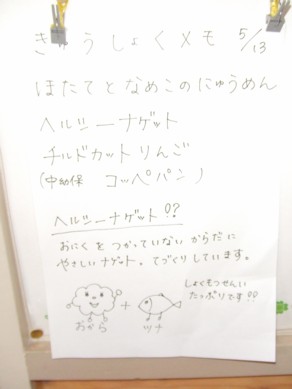 きゅうしょくメモ 5/13
ほたてとなめこのにゅうめん
ヘルシーナゲット
チルドカットりんご
(中幼保 コッペパン)
ヘルシーナゲット!?
おにくをつかっていないからだに
やさしいナゲット。てづくりしています。
おから + ツナ
しょくもつせんい
たっぷりです!!